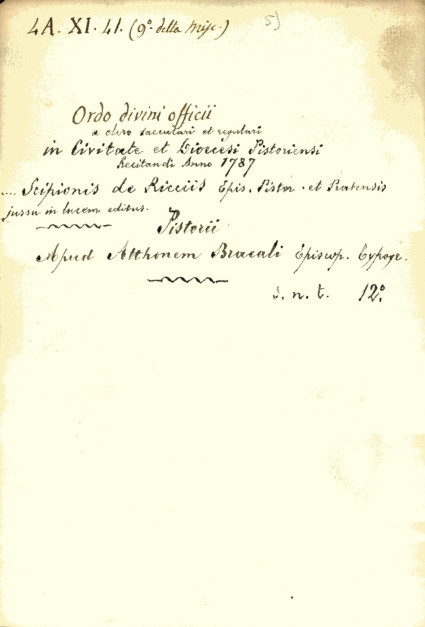 4A. XI. 41. (9º della Misc.) 5)
Ordo divini officii
a clero saeculari et regulari
in Civitate et Dioecesi Pistoriensi
Recitandi Anno 1787
.... Scipionis de Ricciis Epis. Pistor. et Pratensis
jussu in lucem editus.
Pistorii
Apud Atthonem Bracali Episcop. Typogr.
s. n. t. 12º.